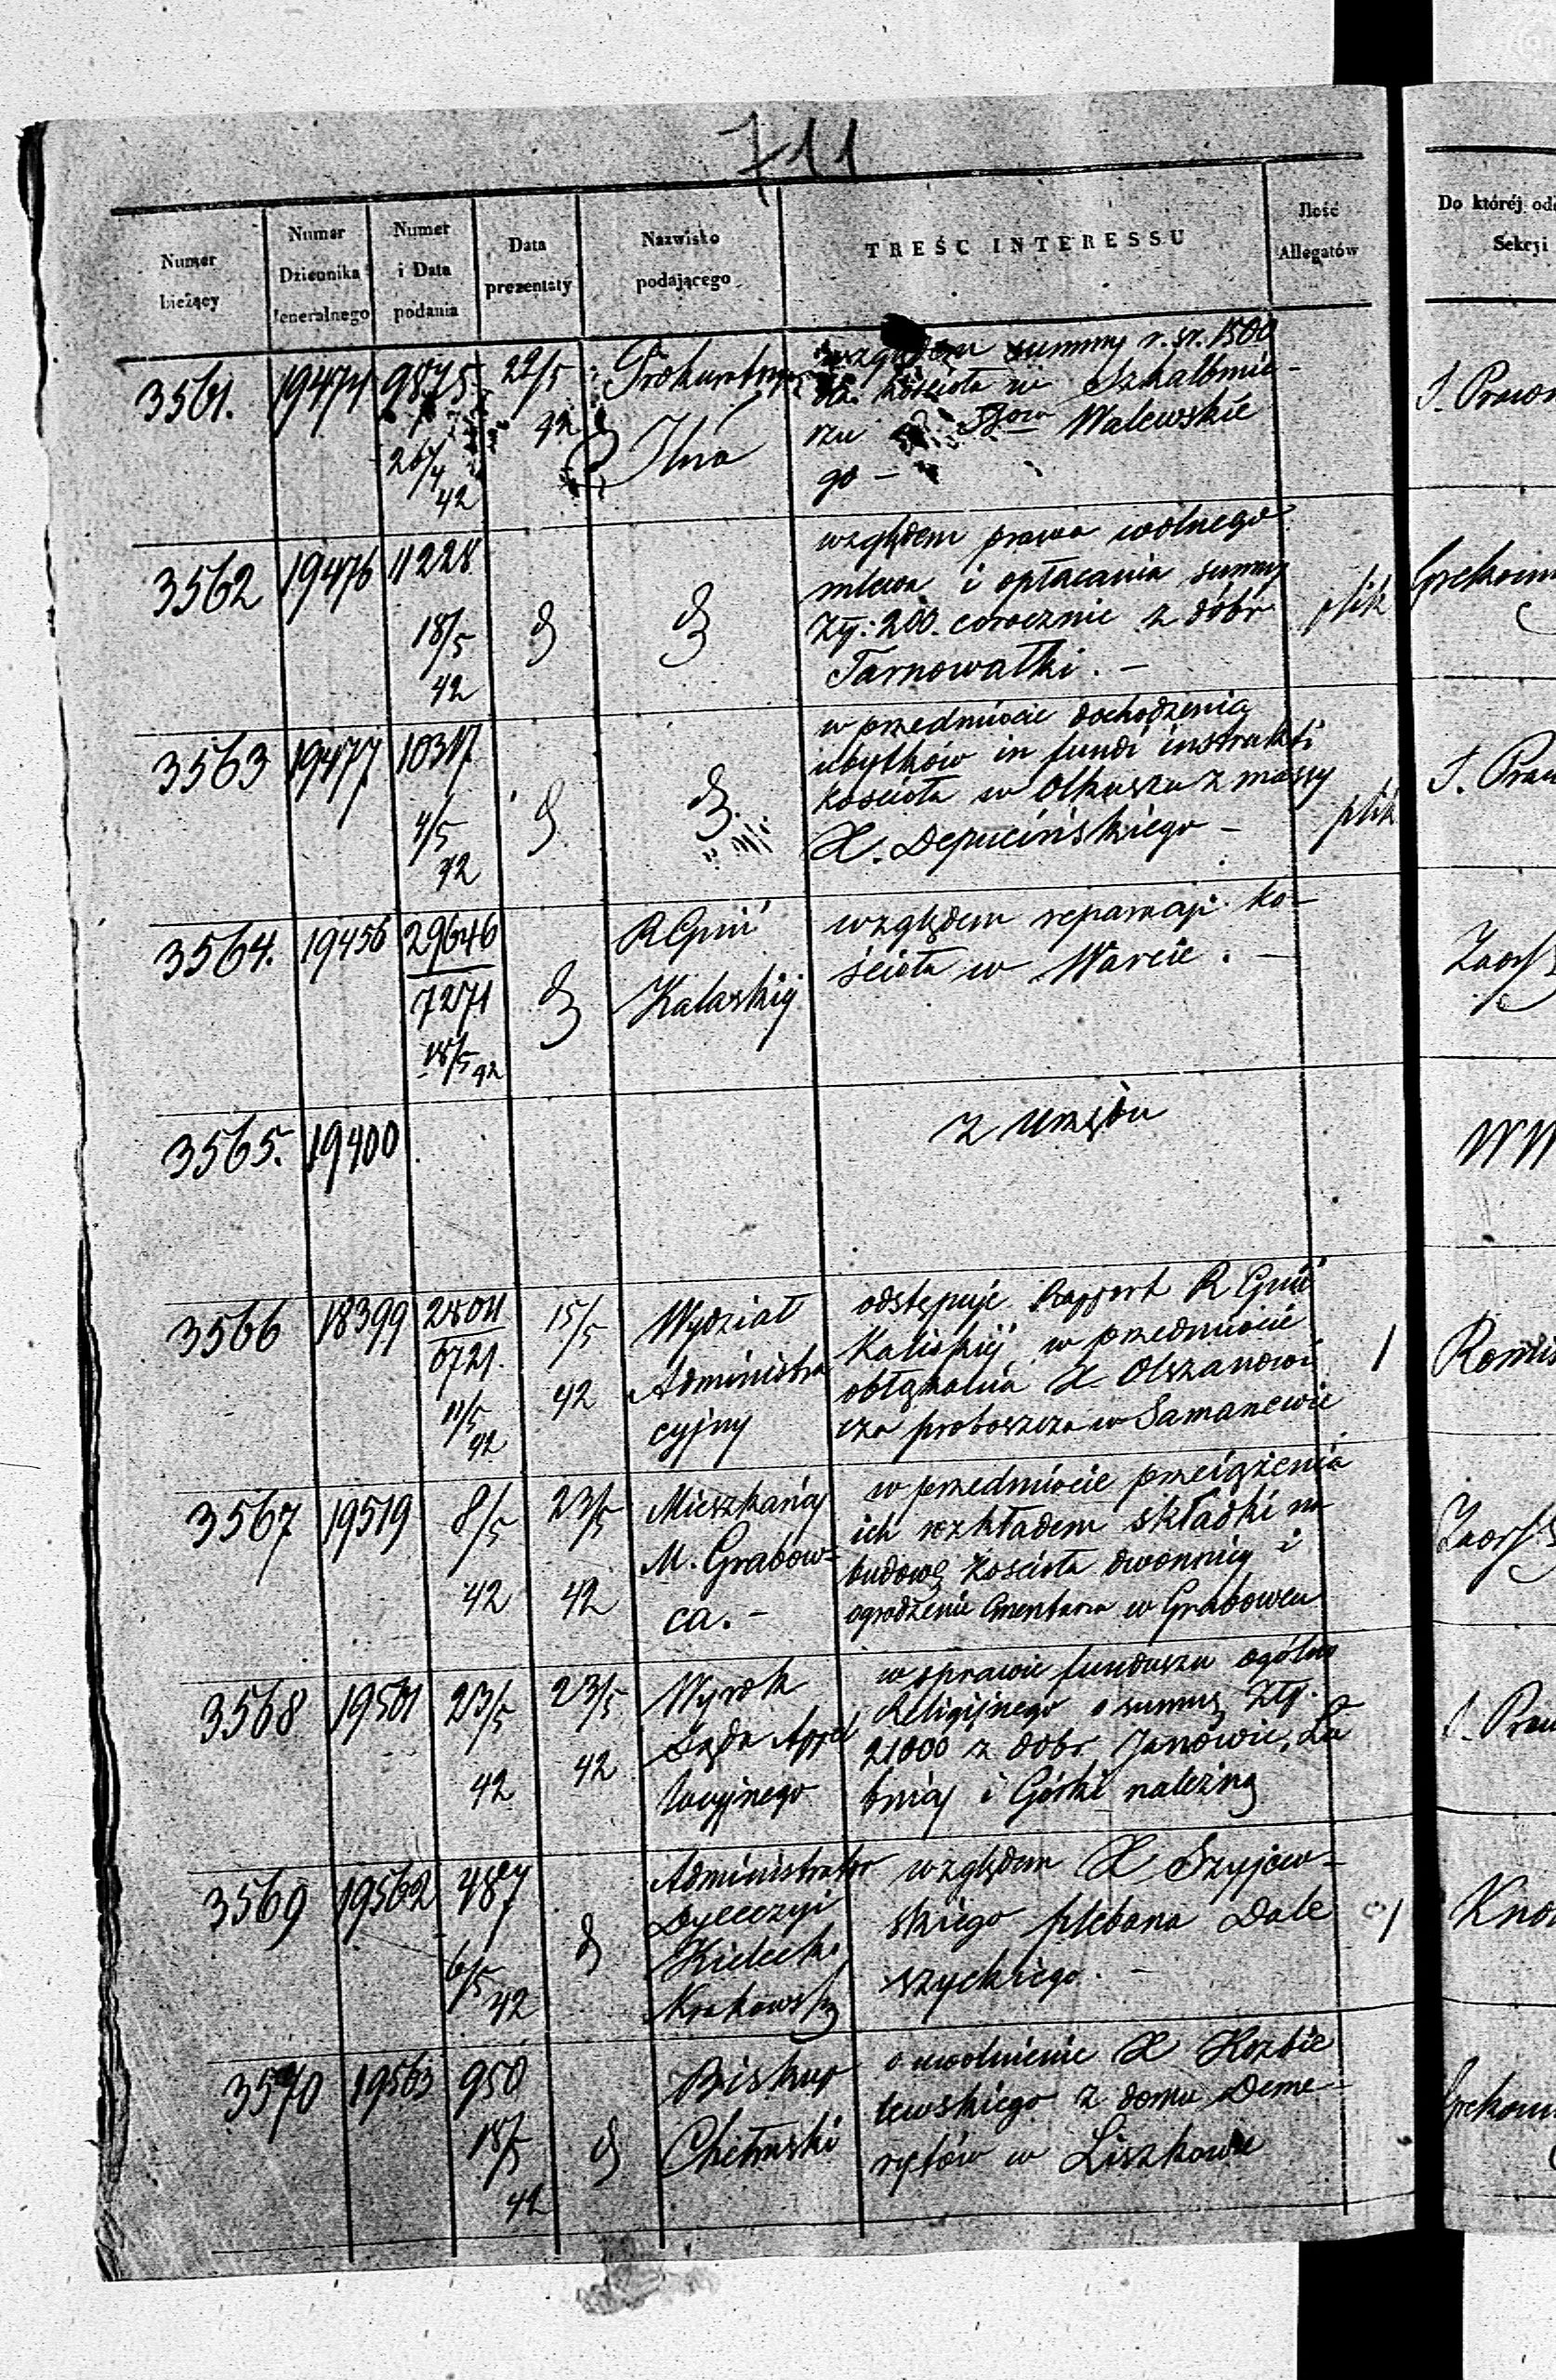 711
Numer bieżący
Numer Dziennika Jeneralnego
Numer i Data podania
Data prezentaty
Nazwisko podającego
TREŚĆ INTERESSU
Ilość Allegatów
Do któréj od
Sekcyi
3561. 19474 9875 26/4 42
22/5 42
Prokurator
względem summy r. sr. 1500
dla kościoła w Szkalbmie-
rzu Walewskie
go –
3562 19476 11228 18/5 42
względem prawa wolnego
mlewa i opłacania summy
Złp: 200. corocznie z dóbr
Tarnowatki. –
plik
3563 19477 10317 4/5 42
w przedmiocie dochodzenia
ubytków in fundi instrukti
kościoła w Olkuszu z massy
X. Depucińskiego –
plik
3564. 19456 29646
7271
18/5 42
R Gǔń
Kalaskiy
względem reparacji ko-
ścioła w Warcie. –
3565. 19400
z urzędu
3566 18399 28011
6721.
11/5 42
15/5 42
Wydział
Administra
cyjny
odstępuje Rapport R Gu
Kaliskiy w przedmiocie
obłąkania X Olszanowi
cza proboszcza w Samanewie
1
3567 19519 8/5 42
23/5 42
Mieszkańcy
M. Grabow-
ca. –
w przedmiocie przeciążenia
ich rozkładem składki na
budowę kościoła dzwonnicy i
ogrodzenie Cmentarza w Grabowcu
3568 19501 23/5 42
23/5 42
Wyrok
Sądu Appel
lacyjnego
w sprawie funduszu ogólno
Religijnego o summę Złp.
21000 z dobr Janowic, La
bnicy i Górki należną
3569 19562 487 6/5 42
Administrator
Dyecezyi
Kielecko
Krakowsk
względem X Szyjew-
skiego plebana Dale
szyckiego. –
1
3570 19563 950 18/5 42
Biskup
Chełmski
o uwolnienie X Kozbie
lewskiego z domu Deme-
rytów w Liszkowie